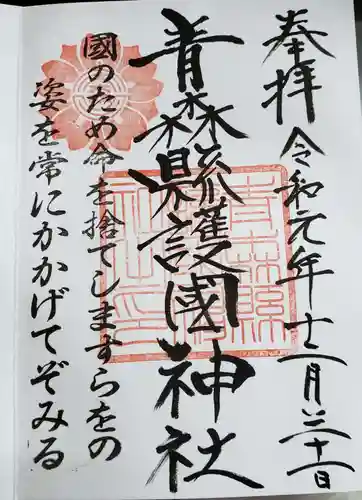 奉拝
令和元年十一月二十一日
青森縣護國神社
國のため命を捨てしますらをの
姿を常にかかげてぞみる